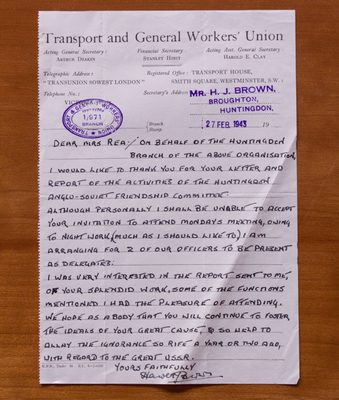 Transport and General Workers' Union
Acting General Secretary: Financial Secretary Acting Asst. General Secretary:
ARTHUR DEAKIN STANLEY HIRST HAROLD E. CLAY
Telegraphic Address: Registered Office: TRANSPORT HOUSE,
"TRANSUNION SOWEST LONDON" SMITH SQUARE, WESTMINSTER, S.W.1
Telephone No.: Secretary's Address
MR. H. J. BROWN,
BROUGHTON,
HUNTINGDON.
VIC
1/971
BRANCH
Branch
Stamp
27 FEB 1943 19
DEAR MRS REA:/ ON BEHALF OF THE HUNTINGDON
BRANCH OF THE ABOVE ORGANISATION,
I WOULD LIKE TO THANK YOU FOR YOUR LETTER AND
REPORT OF THE ACTIVITIES OF THE HUNTINGDON
ANGLO-SOVIET FRIENDSHIP COMMITTEE.
ALTHOUGH PERSONALLY I SHALL BE UNABLE TO ACCEPT
YOUR INVITATION TO ATTEND MONDAYS MEETING, OWING
TO NIGHT WORK (MUCH AS I SHOULD LIKE TO) I AM
ARRANGING FOR 2 OF OUR OFFICERS TO BE PRESENT
AS DELEGATES.
I WAS VERY INTERESTED IN THE REPORT SENT TO ME,
OF YOUR SPLENDID WORK, SOME OF THE FUNCTIONS
MENTIONED I HAD THE PLEASURE OF ATTENDING.
WE HOPE AS A BODY THAT YOU WILL CONTINUE TO FOSTER
THE IDEALS OF YOUR GREAT CAUSE, & SO HELP TO
ALLAY THE IGNORANCE SO RIFE A YEAR OR TWO AGO,
WITH REGARD TO THE GREAT USSR.
YOURS FAITHFULLY